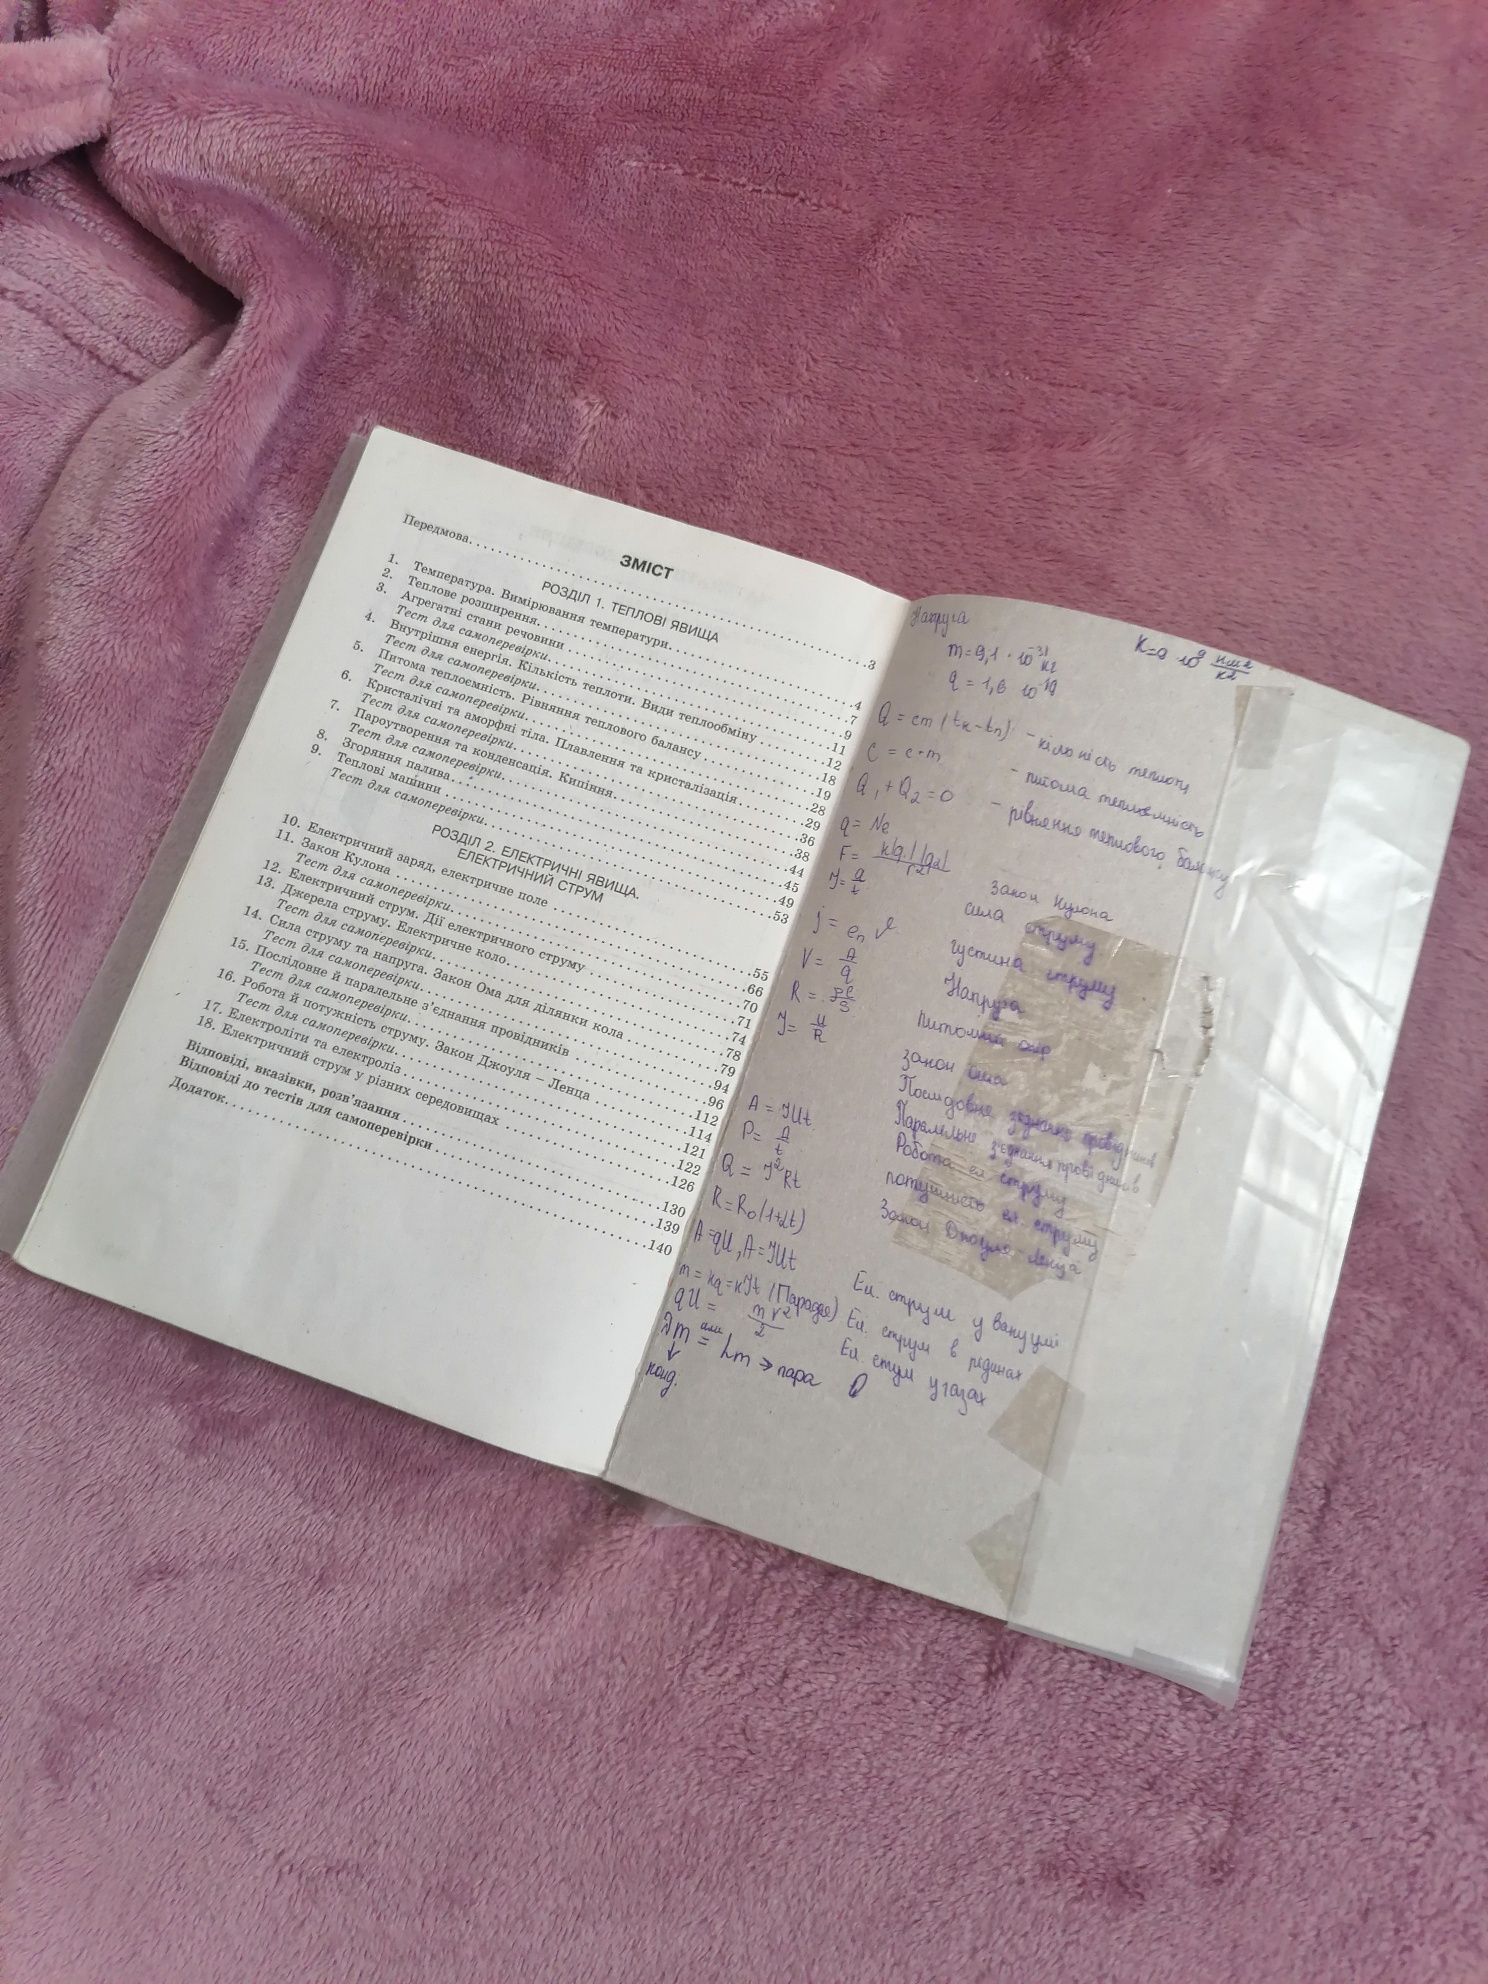 ЗМІСТ
Передмова.....3
РОЗДІЛ 1. ТЕПЛОВІ ЯВИЩА
1. Температура. Вимірювання температури.....4
2. Теплове розширення.....7
3. Агрегатні стани речовини.....9
Тест для самоперевірки.....11
4. Внутрішня енергія. Кількість теплоти. Види теплообміну.....12
Тест для самоперевірки.....18
5. Питома теплоємність. Рівняння теплового балансу.....19
Тест для самоперевірки.....28
6. Кристалічні та аморфні тіла. Плавлення та кристалізація.....29
Тест для самоперевірки.....36
7. Пароутворення та конденсація. Кипіння.....38
Тест для самоперевірки.....44
8. Згоряння палива.....45
9. Теплові машини.....49
Тест для самоперевірки.....53
РОЗДІЛ 2. ЕЛЕКТРИЧНІ ЯВИЩА.
ЕЛЕКТРИЧНИЙ СТРУМ
10. Електричний заряд, електричне поле.....55
11. Закон Кулона.....66
Тест для самоперевірки.....70
12. Електричний струм. Дії електричного струму.....71
13. Джерела струму. Електричне коло.....74
Тест для самоперевірки.....78
14. Сила струму та напруга. Закон Ома для ділянки кола.....79
Тест для самоперевірки.....94
15. Послідовне й паралельне з'єднання провідників.....96
Тест для самоперевірки.....112
16. Робота й потужність струму. Закон Джоуля – Ленца.....114
Тест для самоперевірки.....121
17. Електроліти та електроліз.....122
18. Електричний струм у різних середовищах.....126
Відповіді, вказівки, розв'язання.....130
Відповіді до тестів для самоперевірки.....139
Додаток.....140
Напруга
m=9,1 · 10⁻³¹ кг
q = 1,6 10⁻¹⁹
Q = cm (tк-tп) - кількість теплоти
C = c·m - питома теплоємність
Q1+Q2=0 - рівняння теплового балансу
q = Ne
F = k|q1||q2|/r2 Закон Кулона
I = q/t сила струму
густина струму
V = A/q Напруга
R = ρl/S питомий опір
I = U/R закон
Послідовне з'єднання провідників
Паралельне з'єднання провідників
A = IUt Робота ел струму
P = A/t потужність ел. струму
Q = I²Rt Закон Джоуля Ленца
R=R0(1+αt)
A=qU, A=IUt
Ел. струм у вакуумі
m = kq=kIt (Фарадея) Ел. струм в рідинах
qU = mv²/2 Ел. стум у газах
λm = Lm → пара
↓
конд.